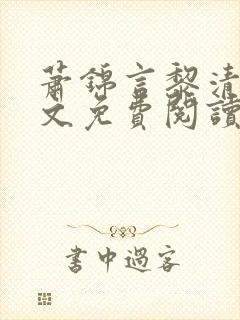 蕭錦言黎清
文免費閱讀
書中過客